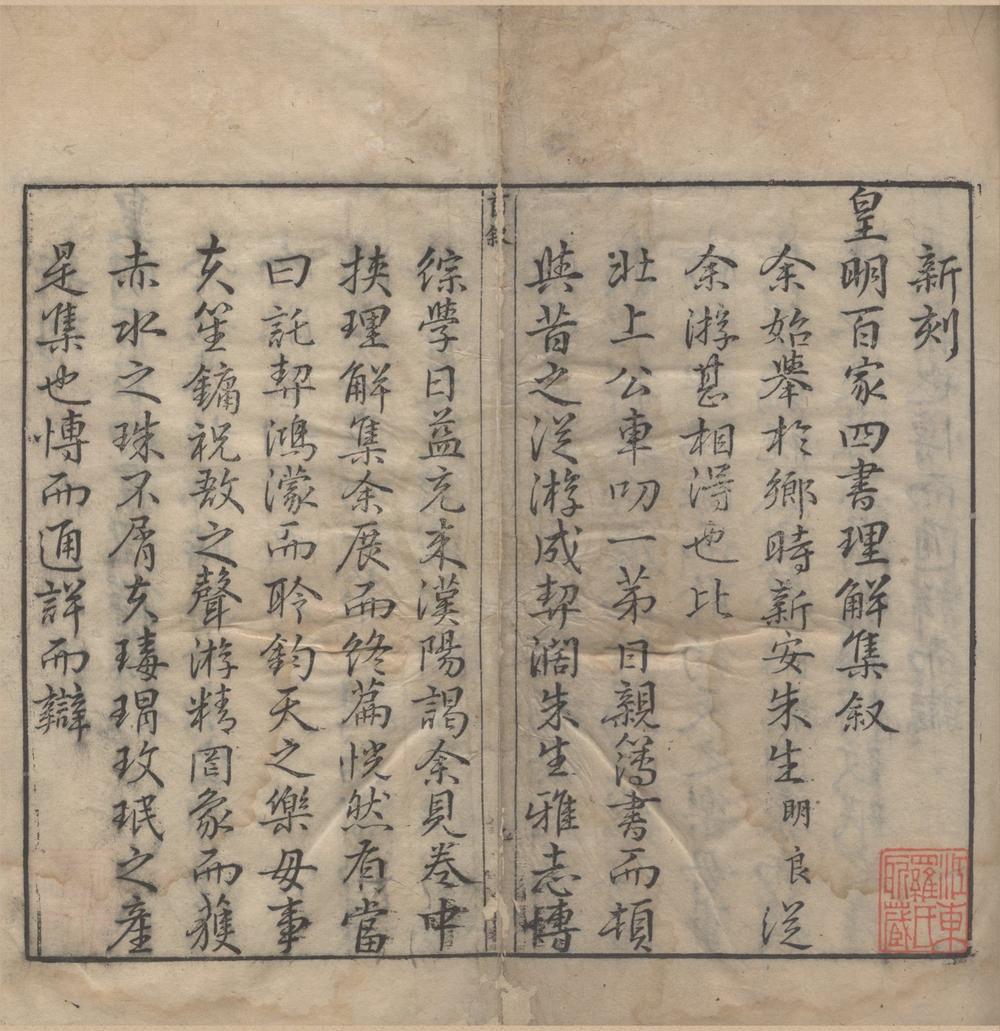 新刻
皇明百家四書理解集叙
余始舉於鄉時新安朱生明良從
余游甚相得也比
壯上公車叨一第目親簿書而頓
與昔之從游成契濶朱生雅志博
綜學日益充来漢陽謁余見卷中
挾理解集余展而終篇恍然有當
曰託契鴻濛而聆鈞天之樂毋事
夫笙鏞祝敔之聲游精罔象而獲
赤水之珠不屑夫瑇瑁玫珉之産
是集也博而通詳而辯
叙
江東羅氏所藏